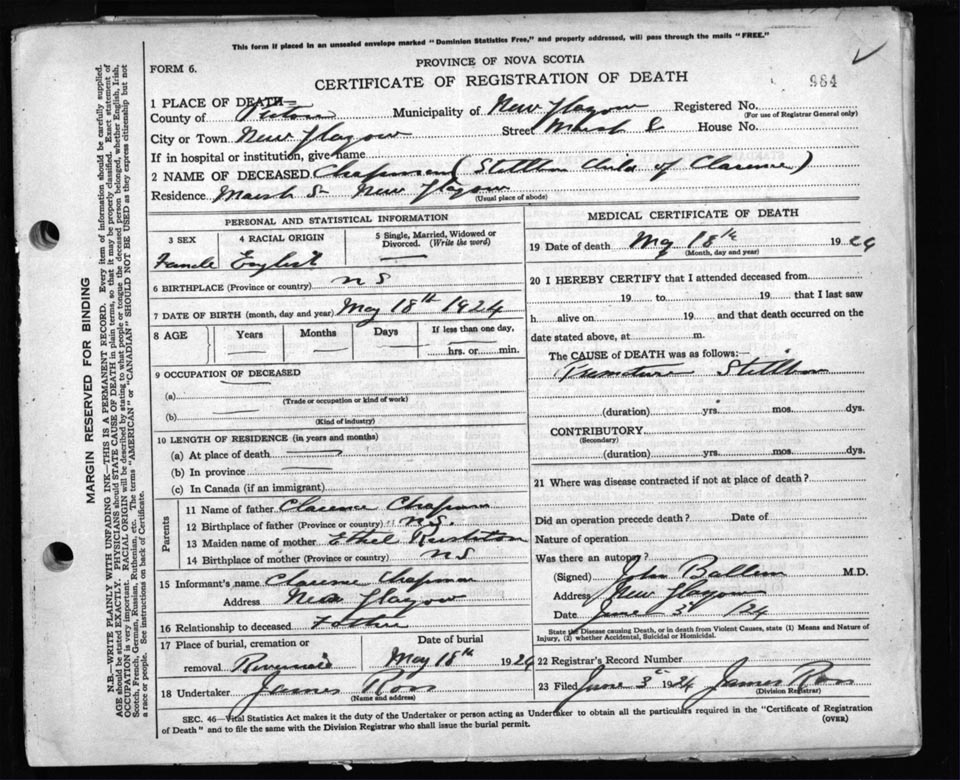 This form if placed in an unsealed envelope marked "Dominion Statistics Free," and properly addressed, will pass through the mails "FREE."
PROVINCE OF NOVA SCOTIA
FORM 6.
CERTIFICATE OF REGISTRATION OF DEATH
984
1 PLACE OF DEATH—
County of Pictou Municipality of New Glasgow Registered No.
(For use of Registrar General only)
City or Town New Glasgow Street Marsh St House No.
If in hospital or institution, give name
2 NAME OF DECEASED Chapman (Stillborn Child of Clarence)
Residence Marsh St New Glasgow
(Usual place of abode)
PERSONAL AND STATISTICAL INFORMATION
3 SEX 4 RACIAL ORIGIN 5 Single, Married, Widowed or Divorced. (Write the word)
Female English —
6 BIRTHPLACE (Province or country) N S
7 DATE OF BIRTH (month, day and year) May 18th 1924
8 AGE Years Months Days If less than one day,
hrs. or min.
9 OCCUPATION OF DECEASED
(a)
(Trade or occupation or kind of work)
(b)
(Kind of industry)
10 LENGTH OF RESIDENCE (in years and months)
(a) At place of death
(b) In province
(c) In Canada (if an immigrant)
Parents
11 Name of father Clarence Chapman
12 Birthplace of father (Province or country) N.S.
13 Maiden name of mother Ethel
14 Birthplace of mother (Province or country) N S
15 Informant's name Clarence Chapman
Address New Glasgow
16 Relationship to deceased Father
17 Place of burial, cremation or Date of burial
removal Riverside May 18th 1924
18 Undertaker James Ross
(Name and address)
MEDICAL CERTIFICATE OF DEATH
19 Date of death May 18th 1924
(Month, day and year)
20 I HEREBY CERTIFY that I attended deceased from
19 to 19 that I last saw
h alive on 19 and that death occurred on the
date stated above, at m.
The CAUSE of DEATH was as follows:—
Premature Stillborn
(duration) yrs. mos. dys.
CONTRIBUTORY
(Secondary)
(duration) yrs. mos. dys.
21 Where was disease contracted if not at place of death?
Did an operation precede death? Date of
Nature of operation
Was there an autopsy?
(Signed) John M.D.
Address New Glasgow
Date June 3 /24
State the Disease causing Death, or in death from Violent Causes, state (1) Means and Nature of
Injury, (2) whether Accidental, Suicidal or Homicidal.
22 Registrar's Record Number
23 Filed June 3 1924 James Ross
(Division Registrar)
SEC. 46—Vital Statistics Act makes it the duty of the Undertaker or person acting as Undertaker to obtain all the particulars required in the "Certificate of Registration
of Death" and to file the same with the Division Registrar who shall issue the burial permit. (OVER)
MARGIN RESERVED FOR BINDING
N.B.—WRITE PLAINLY WITH UNFADING INK—THIS IS A PERMANENT RECORD. Every item of information should be carefully supplied.
AGE should be stated EXACTLY. PHYSICIANS should STATE CAUSE OF DEATH in plain terms, so that it may be properly classified. Exact statement of
OCCUPATION is very important. RACIAL ORIGIN will be described by stating to what people or tongue the deceased person belonged, whether English, Irish,
Scotch, French, German, Russian, Ruthenian, etc. The terms "AMERICAN" or "CANADIAN" SHOULD NOT BE USED as they express citizenship but not
a race or people. See instructions on back of Certificate.